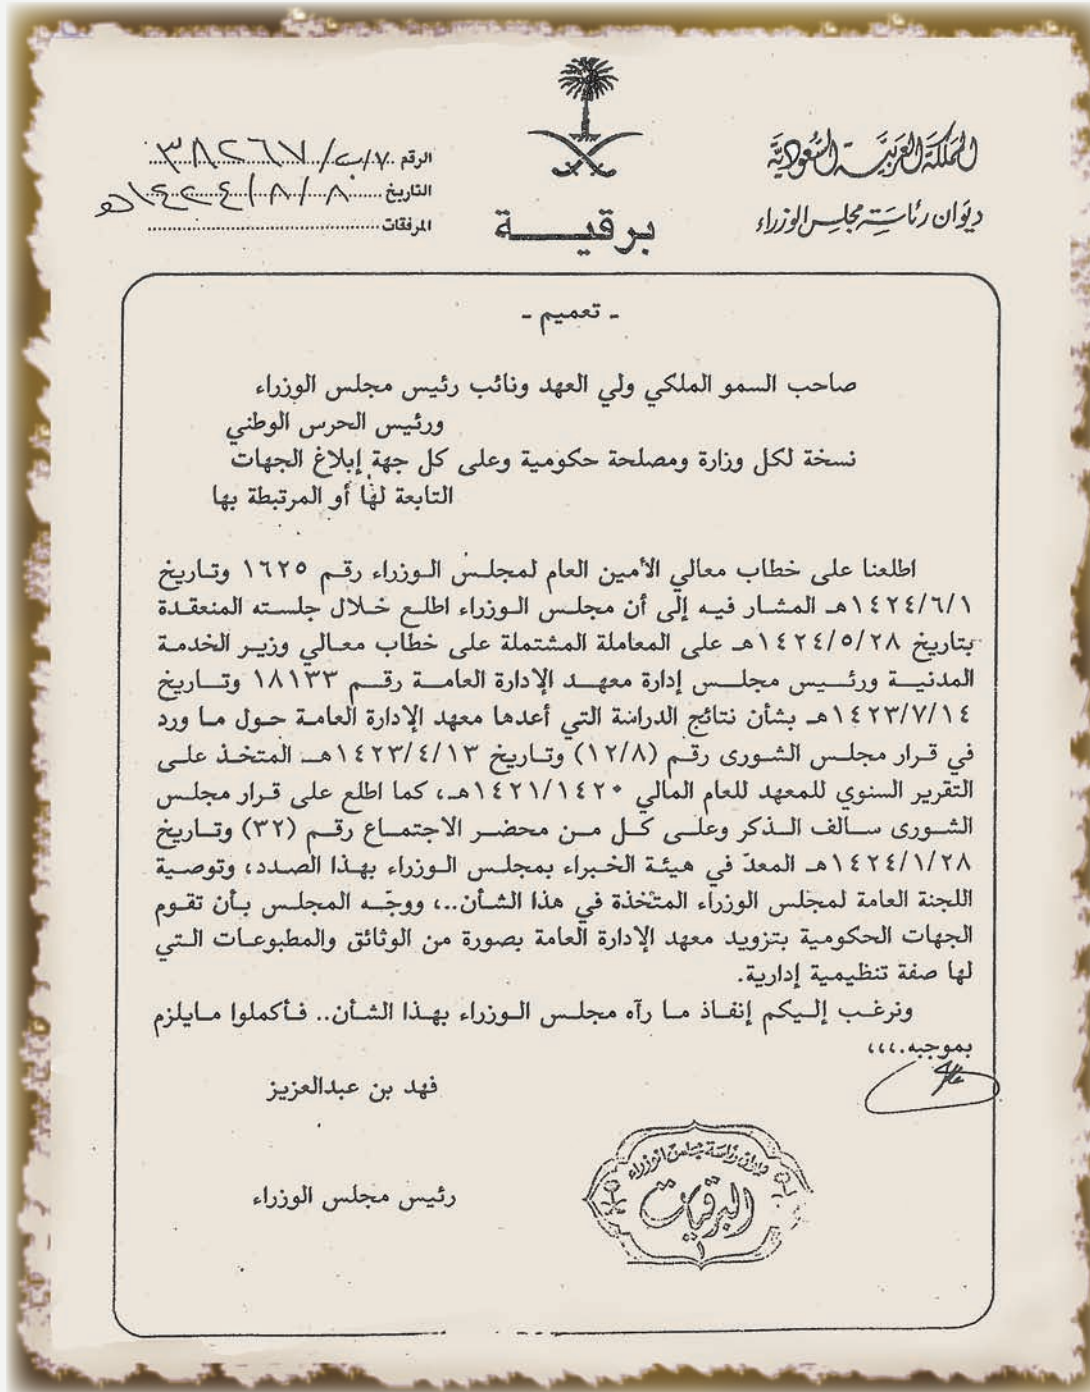 المملكة العربية السعودية
ديوان رئاسة مجلس الوزراء
برقية
الرقم ٧/ب/٣٨٢٦٧
التاريخ ٨/٨/١٤٢٤هـ
المرفقات
- تعميم -
صاحب السمو الملكي ولي العهد ونائب رئيس مجلس الوزراء
ورئيس الحرس الوطني
نسخة لكل وزارة ومصلحة حكومية وعلى كل جهة إبلاغ الجهات
التابعة لها أو المرتبطة بها
اطلعنا على خطاب معالي الأمين العام لمجلس الوزراء رقم ١٦٢٥ وتاريخ
١٤٢٤/٦/١هـ المشار فيه إلى أن مجلس الوزراء اطلع خلال جلسته المنعقدة
بتاريخ ١٤٢٤/٥/٢٨هـ على المعاملة المشتملة على خطاب معالي وزير الخدمة
المدنية ورئيس مجلس إدارة معهد الإدارة العامة رقم ١٨١٣٣ وتاريخ
١٤٢٣/٧/١٤هـ بشأن نتائج الدراسة التي أعدها معهد الإدارة العامة حول ما ورد
في قرار مجلس الشورى رقم (١٢/٨) وتاريخ ١٤٢٣/٤/١٣هـ المتخذ على
التقرير السنوي للمعهد للعام المالي ١٤٢١/١٤٢٠هـ، كما اطلع على قرار مجلس
الشورى سالف الذكر وعلى كل من محضر الاجتماع رقم (٣٢) وتاريخ
١٤٢٤/١/٢٨هـ المعدّ في هيئة الخبراء بمجلس الوزراء بهذا الصدد، وتوصية
اللجنة العامة لمجلس الوزراء المتخذة في هذا الشأن..، ووجّه المجلس بأن تقوم
الجهات الحكومية بتزويد معهد الإدارة العامة بصورة من الوثائق والمطبوعات التي
لها صفة تنظيمية إدارية.
ونرغب إليكم إنفاذ ما رآه مجلس الوزراء بهذا الشأن.. فأكملوا مايلزم
بموجبه.،،،
فهد بن عبدالعزيز
رئيس مجلس الوزراء
ديوان رئاسة مجلس الوزراء
البرقيات
١